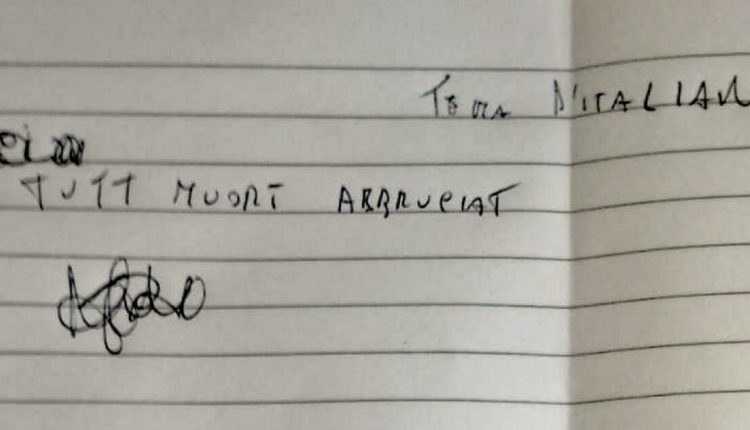 Tema D'ITALIAN
TUTT MUORT ABBRUCIAT